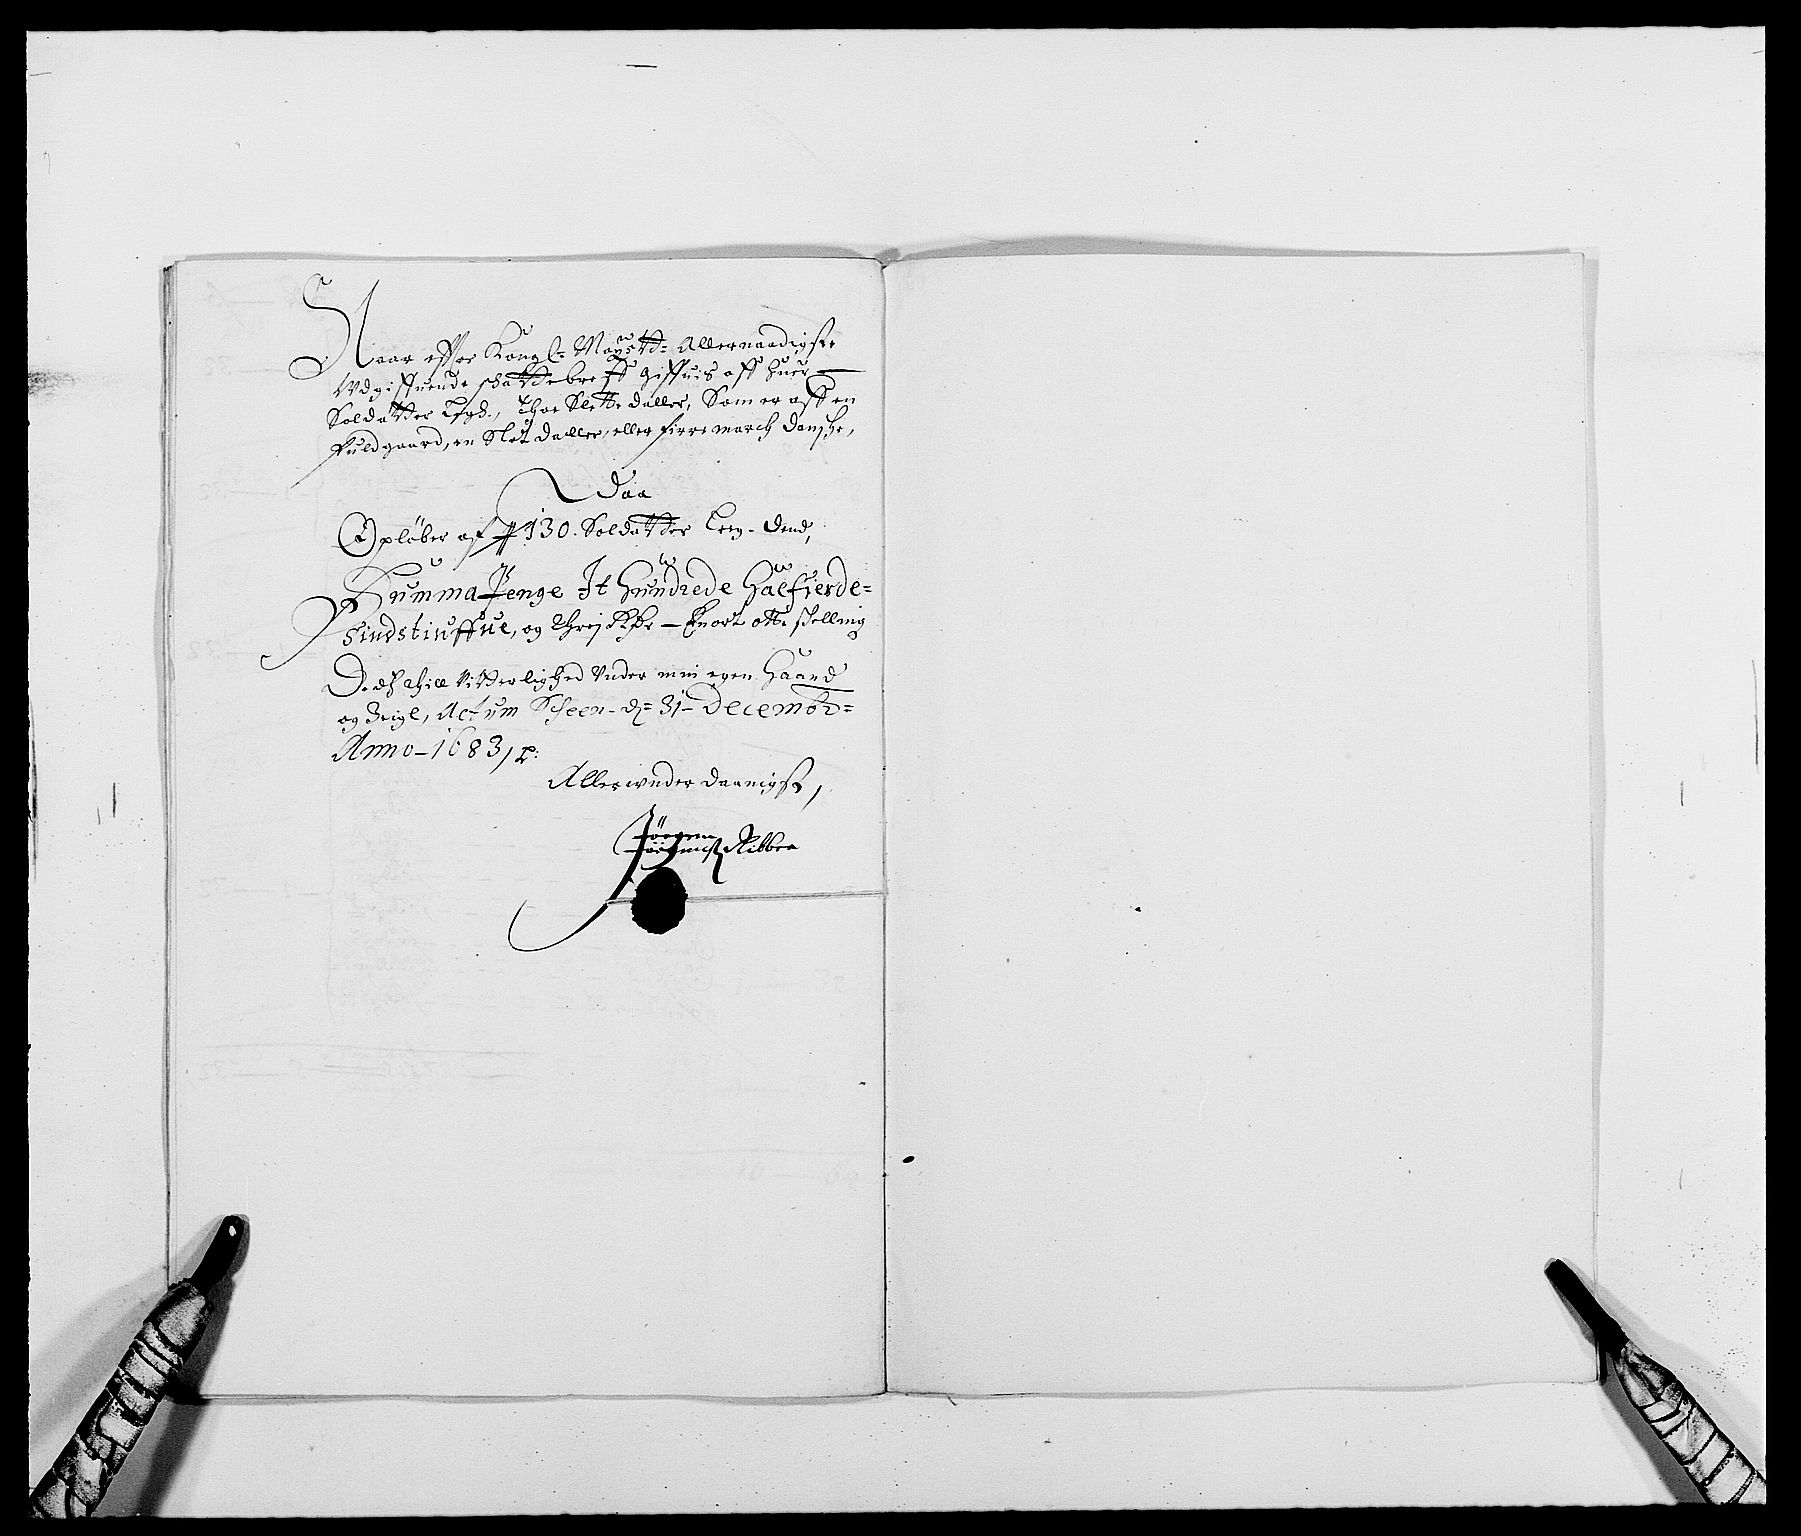 Naar effter Kongl: Mayestt: Allernaadigste
Udgiffuende skattebreff giffuis aff huer
Soldatter Legd, Thoe Slette daller, Som er aff en
fuldgaard, en Slet daller, eller firre march danske,
Daa
Opløber af 130. Soldatter Leg- dend,
Summa Penge It hundrede halfierde-
Sindstiuffue, og threj Rdr - Enort otte skelling
Dedz thill Vitterlighed Under min egen Haand
og Zeigl, Actum Scheen- d: 31- Decembr=
Anno- 1683
Allerunderdaanigst,
Jørgen
Jørgensen Ribber